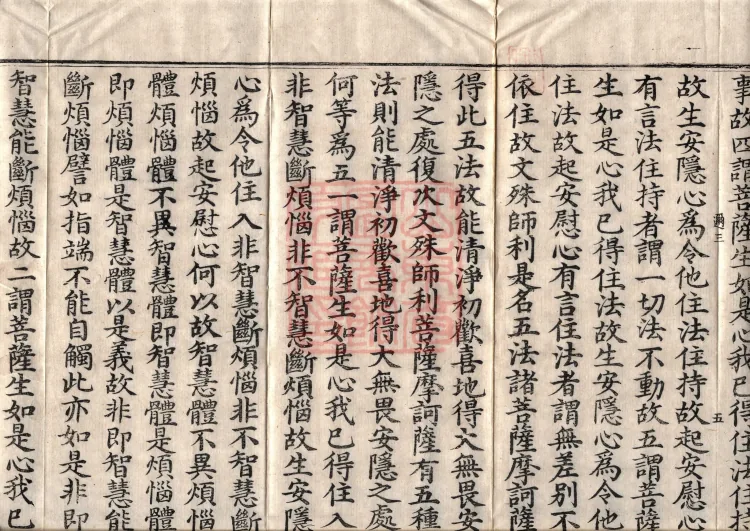 事故四謂菩薩生如是心我已得住法住持
五
故生安隱心為令他住法住持故起安慰心
有言法住持者謂一切法不動故五謂菩薩
生如是心我已得住法故生安隱心為令他
住法故起安慰心有言住法者謂無差別不
依住故文殊師利是名五法諸菩薩摩訶薩
得此五法故能清淨初歡喜地得大無畏安
隱之處復次文殊師利菩薩摩訶薩有五種
法則能清淨初歡喜地得大無畏安隱之處
何等為五一謂菩薩生如是心我已得住入
非智慧斷煩惱非不智慧斷煩惱故生安隱
心為令他住入非智慧斷煩惱非不智慧
煩惱故起安慰心何以故智慧體不異煩惱
體煩惱體不異智慧體即智慧體是煩惱體
即煩惱體是智慧體以是義故非即智慧能
斷煩惱譬如指端不能自觸此亦如是非即
智慧能斷煩惱故二謂菩薩生如是心我已